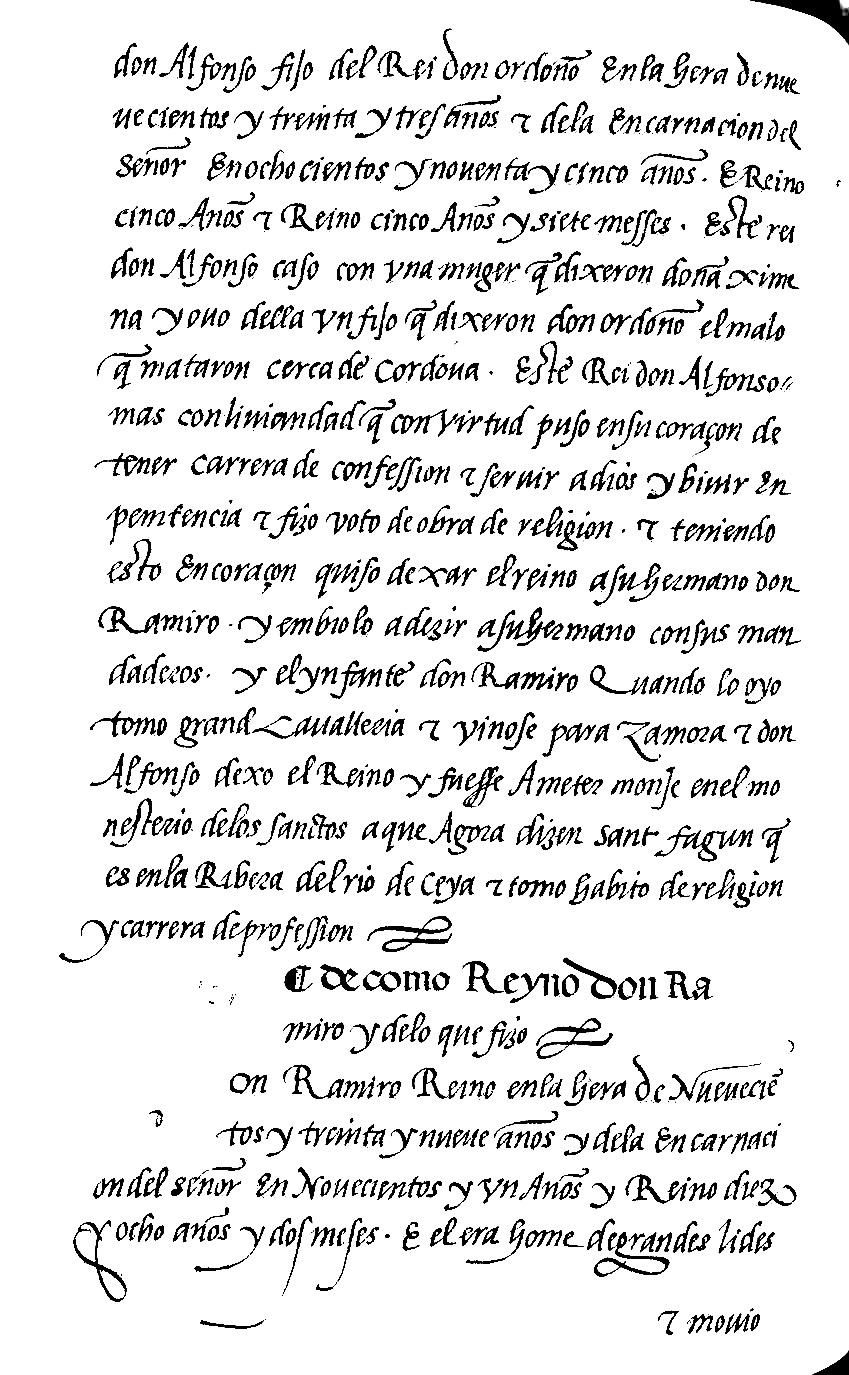 don Alfonso fijo del Rei don ordoño En la hera de nue
ue cientos y treinta y tres años ⁊ dela Encarnacion del
señor En ocho cientos y nouenta y cinco años. E Reino
cinco Años ⁊ Reino cinco Años y siete messes. Este rei
don Alfonso caso con vna muger q̃ dixeron doña xime
na y ouo della vn fijo q̃ dixeron don ordoño el malo
q̃ mataron cerca de Cordoua. Este Rei don Alfonso
mas con liuiandad q̃ con virtud puso en su coraçon de
tener carrera de confession ⁊ seruir a dios y biuir En
penitencia ⁊ fizo voto de obra de religion. ⁊ teniendo
esto En coraçon quiso dexar el reino a su hermano don
Ramiro. y embiolo a dezir a su hermano con sus man
daderos. y el ynfante don Ramiro Quando lo oyo
tomo grand Cauallería ⁊ vinose para Zamora ⁊ don
Alfonso dexo el Reino y fuesse A meter monje en el mo
nesterio delos sanctos a que Agora dizen sant fagun q̃
es en la Ribera del rio de Ceya ⁊ tomo habito de religion
y carrera de profession
¶ de como Reyno don Ra
miro y de lo que fizo
on Ramiro Reino en la hera de Nueueciẽ
d
tos y treinta y nueue años y dela Encarnaci
on del señor En Nouecientos y vn Años y Reino diez
y ocho años y dos meses. E el era home de grandes lides
⁊ mouio